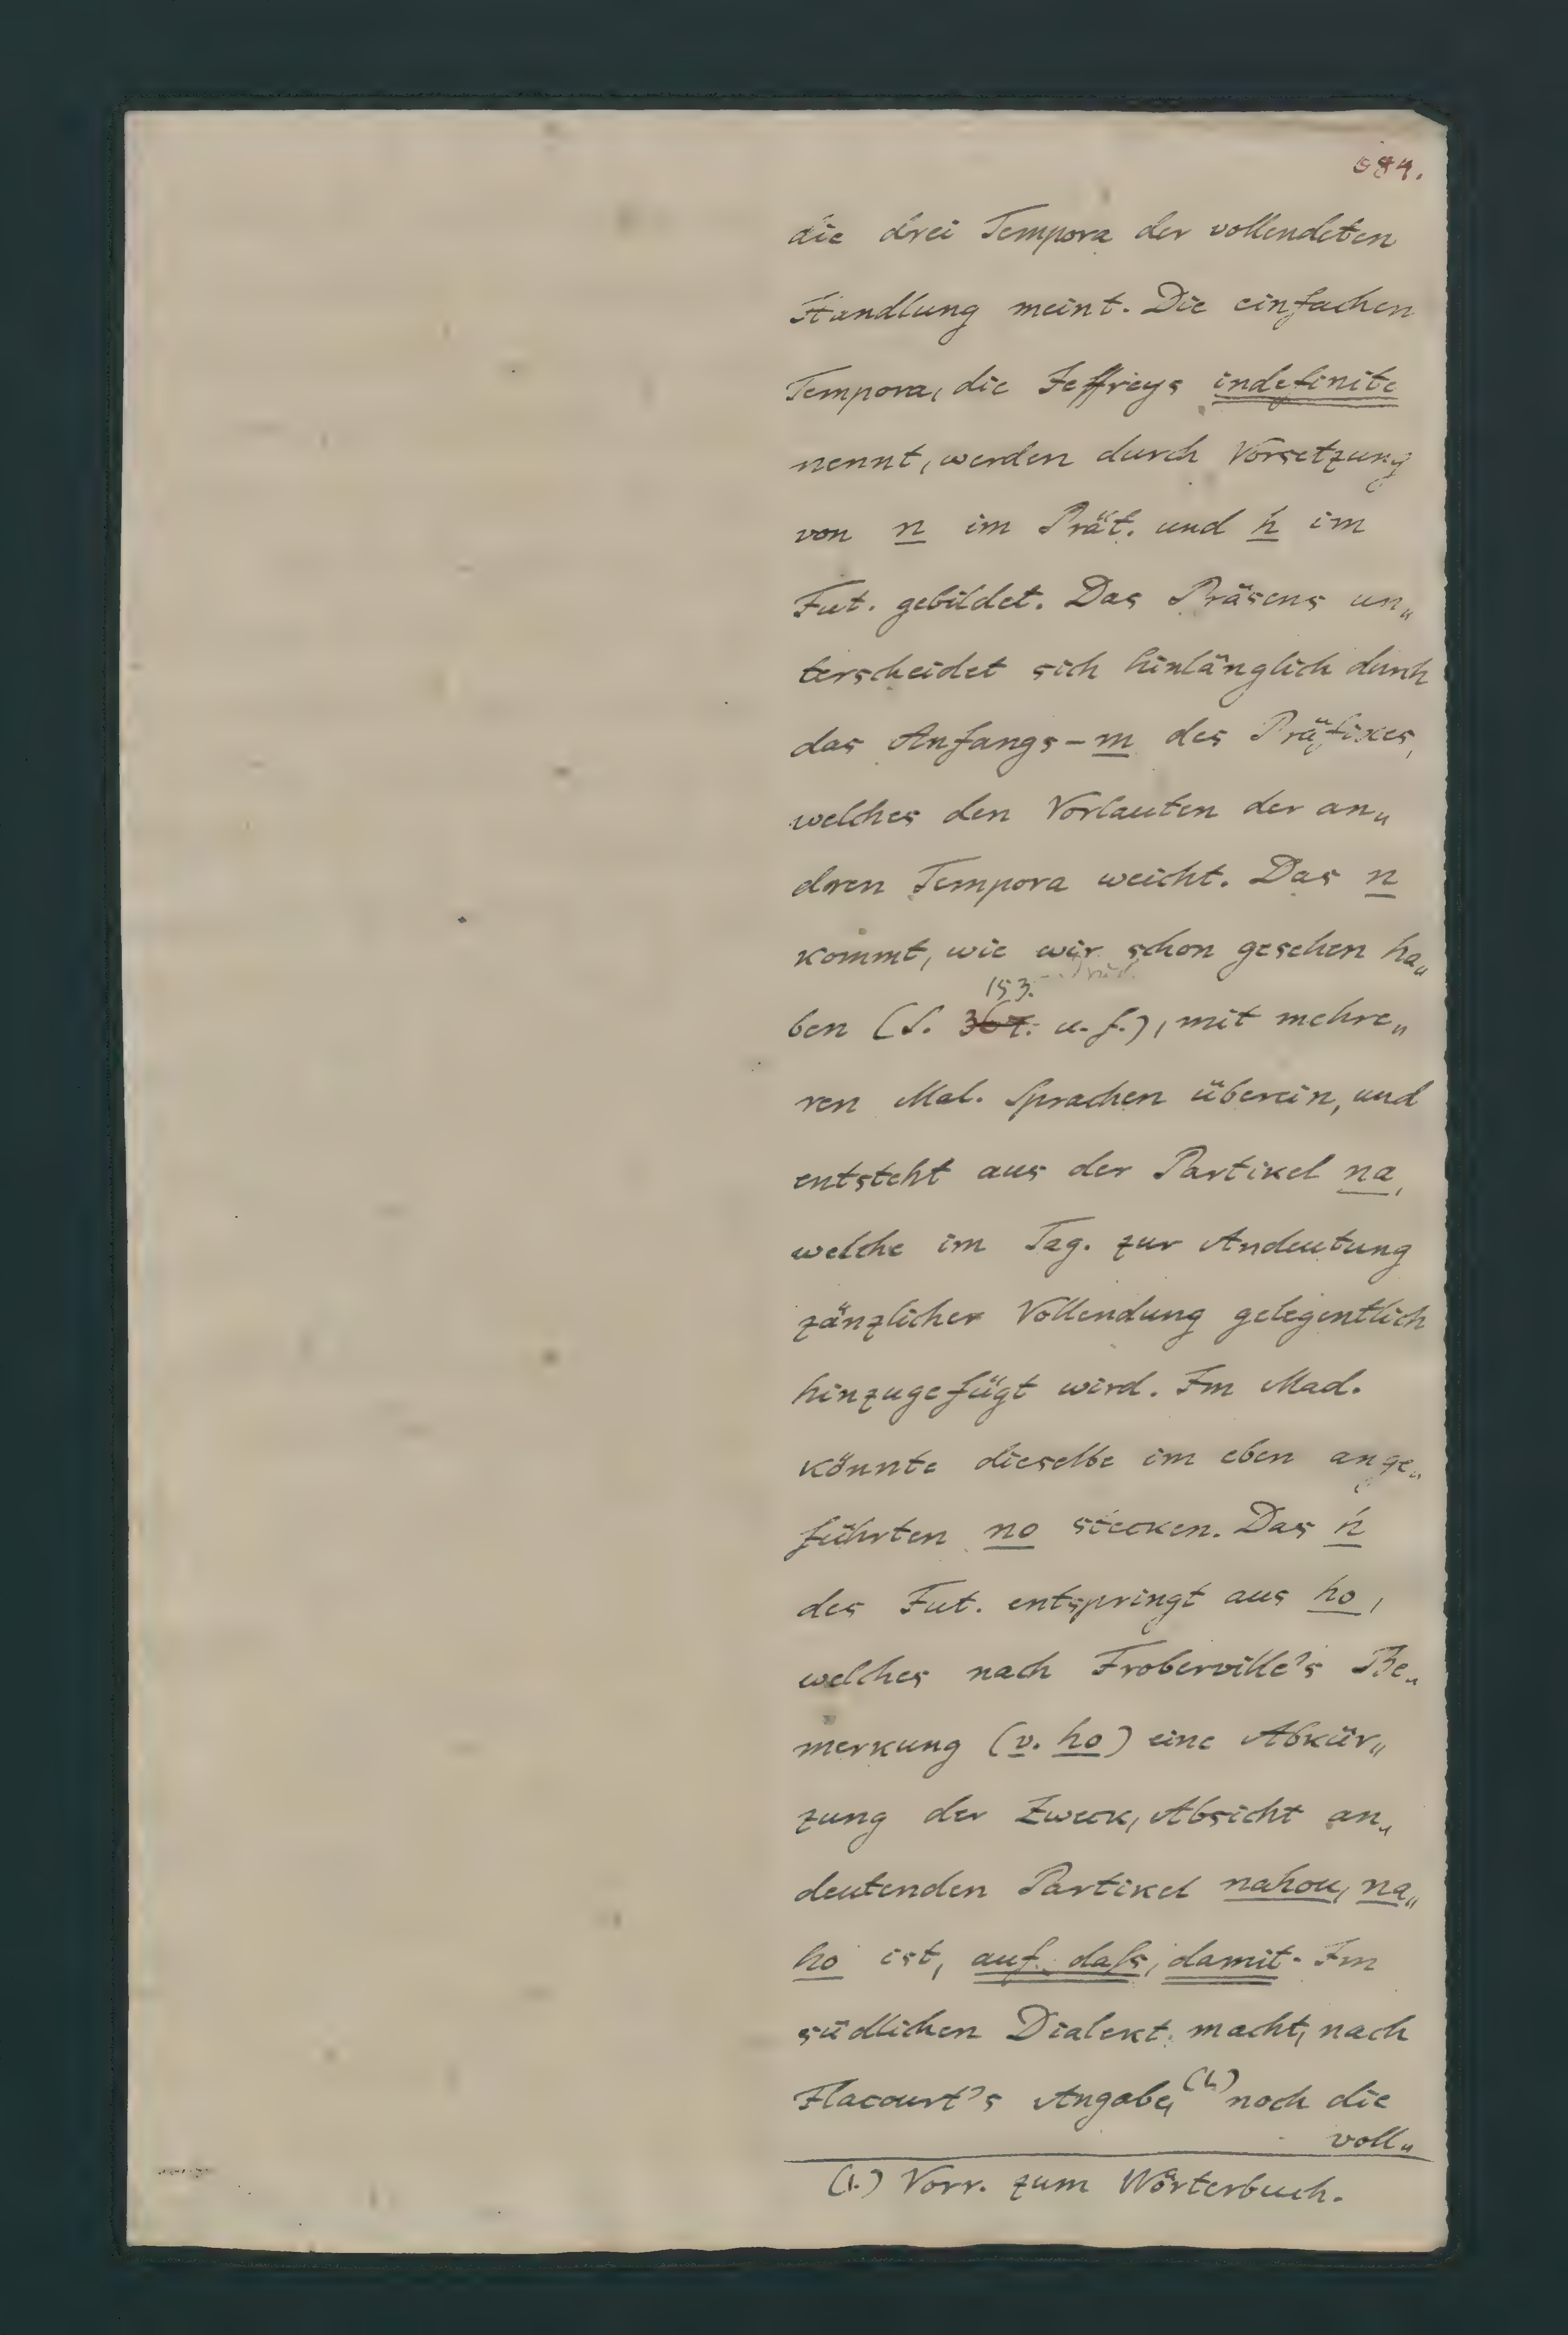 584.
die drei Tempora der vollendeten
Handlung meint. Die einfachen
Tempora, die Jeffreys indefinite
nennt, werden durch Vorsetzung
von n im Prät. und h im
Fut. gebildet. Das Präsens un„
terscheidet sich hinlänglich durch
das Anfangs-m des Präfixes,
welches den Vorlauten der an„
deren Tempora weicht. Das n
kommt, wie wir schon gesehen ha„
153.
ben (S. 367. u. f.), mit mehre„
ren Mal. Sprachen überein, und
entsteht aus der Partikel na,
welche im Tag. zur Andeutung
gänzlicher Vollendung gelegentlich
hinzugefügt wird. Im Mad.
könnte dieselbe im eben ange„
führten no stecken. Das h
des Fut. entspringt aus ho,
welches nach Froberville's Be„
merkung (v. ho) eine Abkür„
zung der Zweck, Absicht an„
deutenden Partikel nahou, na„
ho ist, auf daſs, damit. Im
südlichen Dialekt macht, nach
Flacourt's Angabe, (1.) noch die
voll„
(1.) Vorr. zum Wörterbuch.